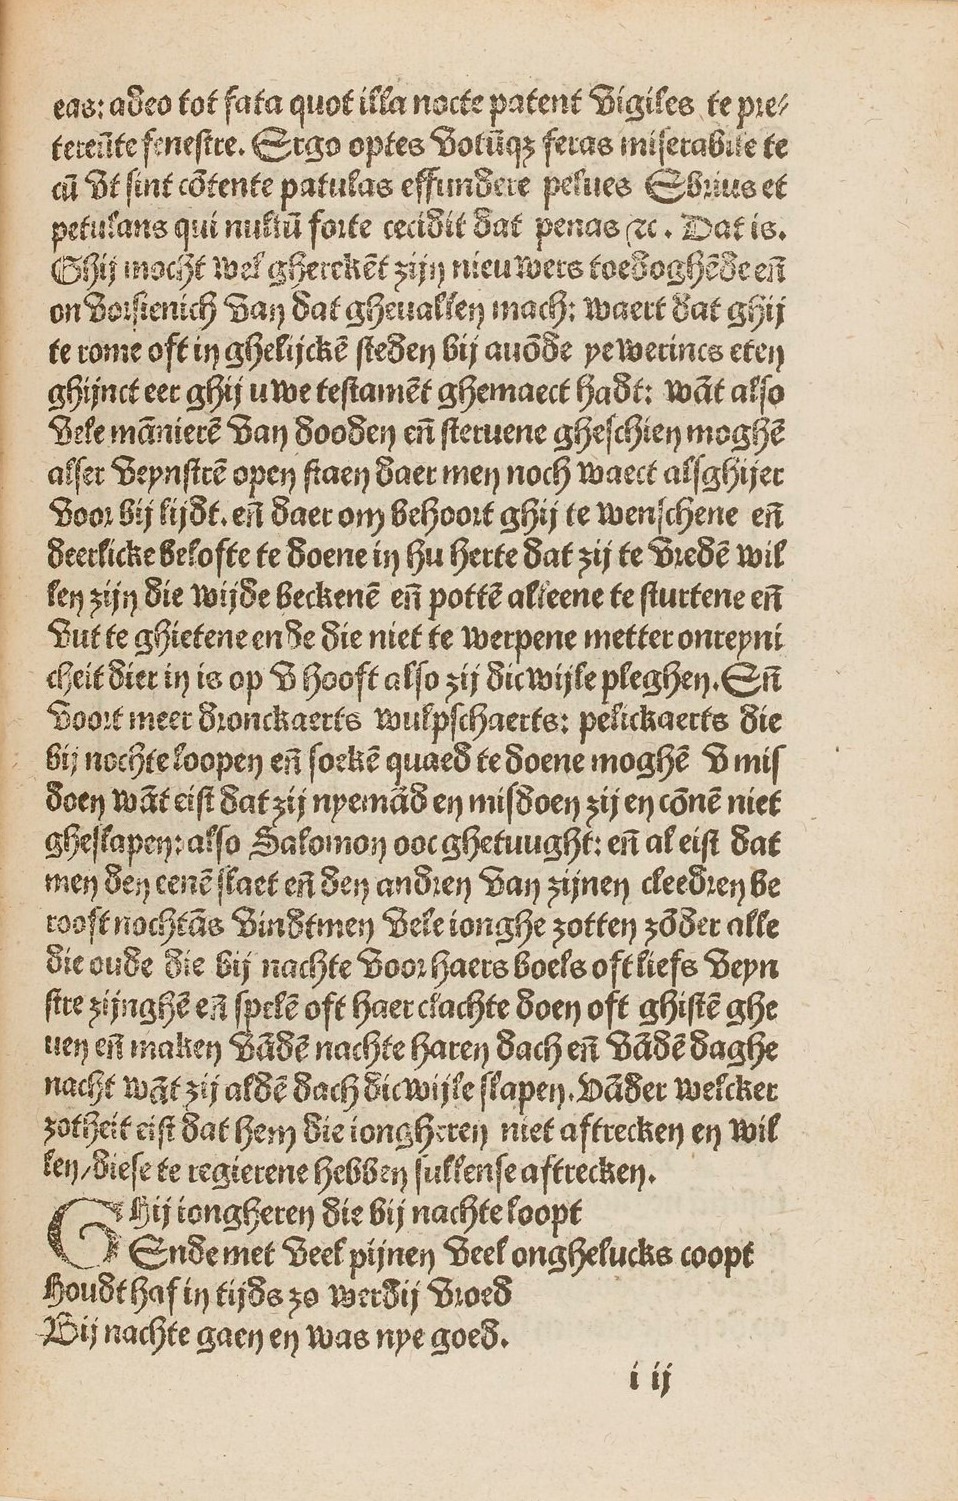 eas: adeo tot fata quot illa nocte patent vigiles te pre⸗
tereūte fenestre. Ergo optes votūqȝ feras miserabile te
cū vt sint cōtente patulas effundere pelues Ebrius et
petulans qui nullū forte cecidit dat penas ⁊c. Dat is.
Ghij mocht wel gherekēt zijn nieuwers toedoghēde eñ
onvorsienich van dat gheuallen mach: waert dat ghij
te rome oft in ghelijckē steden bij auōde yewerincs eten
ghijnct eer ghij uwe testamēt ghemaect hadt: wāt also
vele mānierē van dooden eñ steruene gheschien moghē
alser veynstrē open staen daer men noch waect alsghijer
voor bij lijdt. eñ daer om behoort ghij te wenschene eñ
deerlicke belofte te doene in hu herte dat zij te vredē wil
len zijn die wijde beckenē eñ pottē alleene te sturtene eñ
vut te ghietene ende die niet te werpene metter onreyni
cheit dier in is op v hooft also zij dicwijle pleghen. Eñ
voort meer dronckaerts wulpschaerts: pelickaerts die
bij nochte loopen eñ soekē quaed te doene moghē v mis
doen wāt eist dat zij nyemād en misdoen zij en cōnē niet
gheslapen: also Salomon ooc ghetuught: eñ al eist dat
men den eenē slaet eñ den andren van zijnen cleedren be
rooft nochtās vindtmen vele ionghe zotten zōder alle
die oude die bij nachte voor haers boels oft liefs veyn
stre zijnghē eñ spelē oft haer clachte doen oft ghistē ghe
uen eñ maken vādē nachte haren dach eñ vādē daghe
nacht wāt zij aldē dach dicwijle slapen. vāder welcker
zotheit eist dat hem die iongheren niet aftrecken en wil
len/diese te regierene hebben sullense aftrecken.
Ghij iongheren die bij nachte loopt
Ende met veel pijnen veel onghelucks coopt
Houdt haf in tijds zo werdij vroed
Bij nachte gaen en was nye goed.
i ij